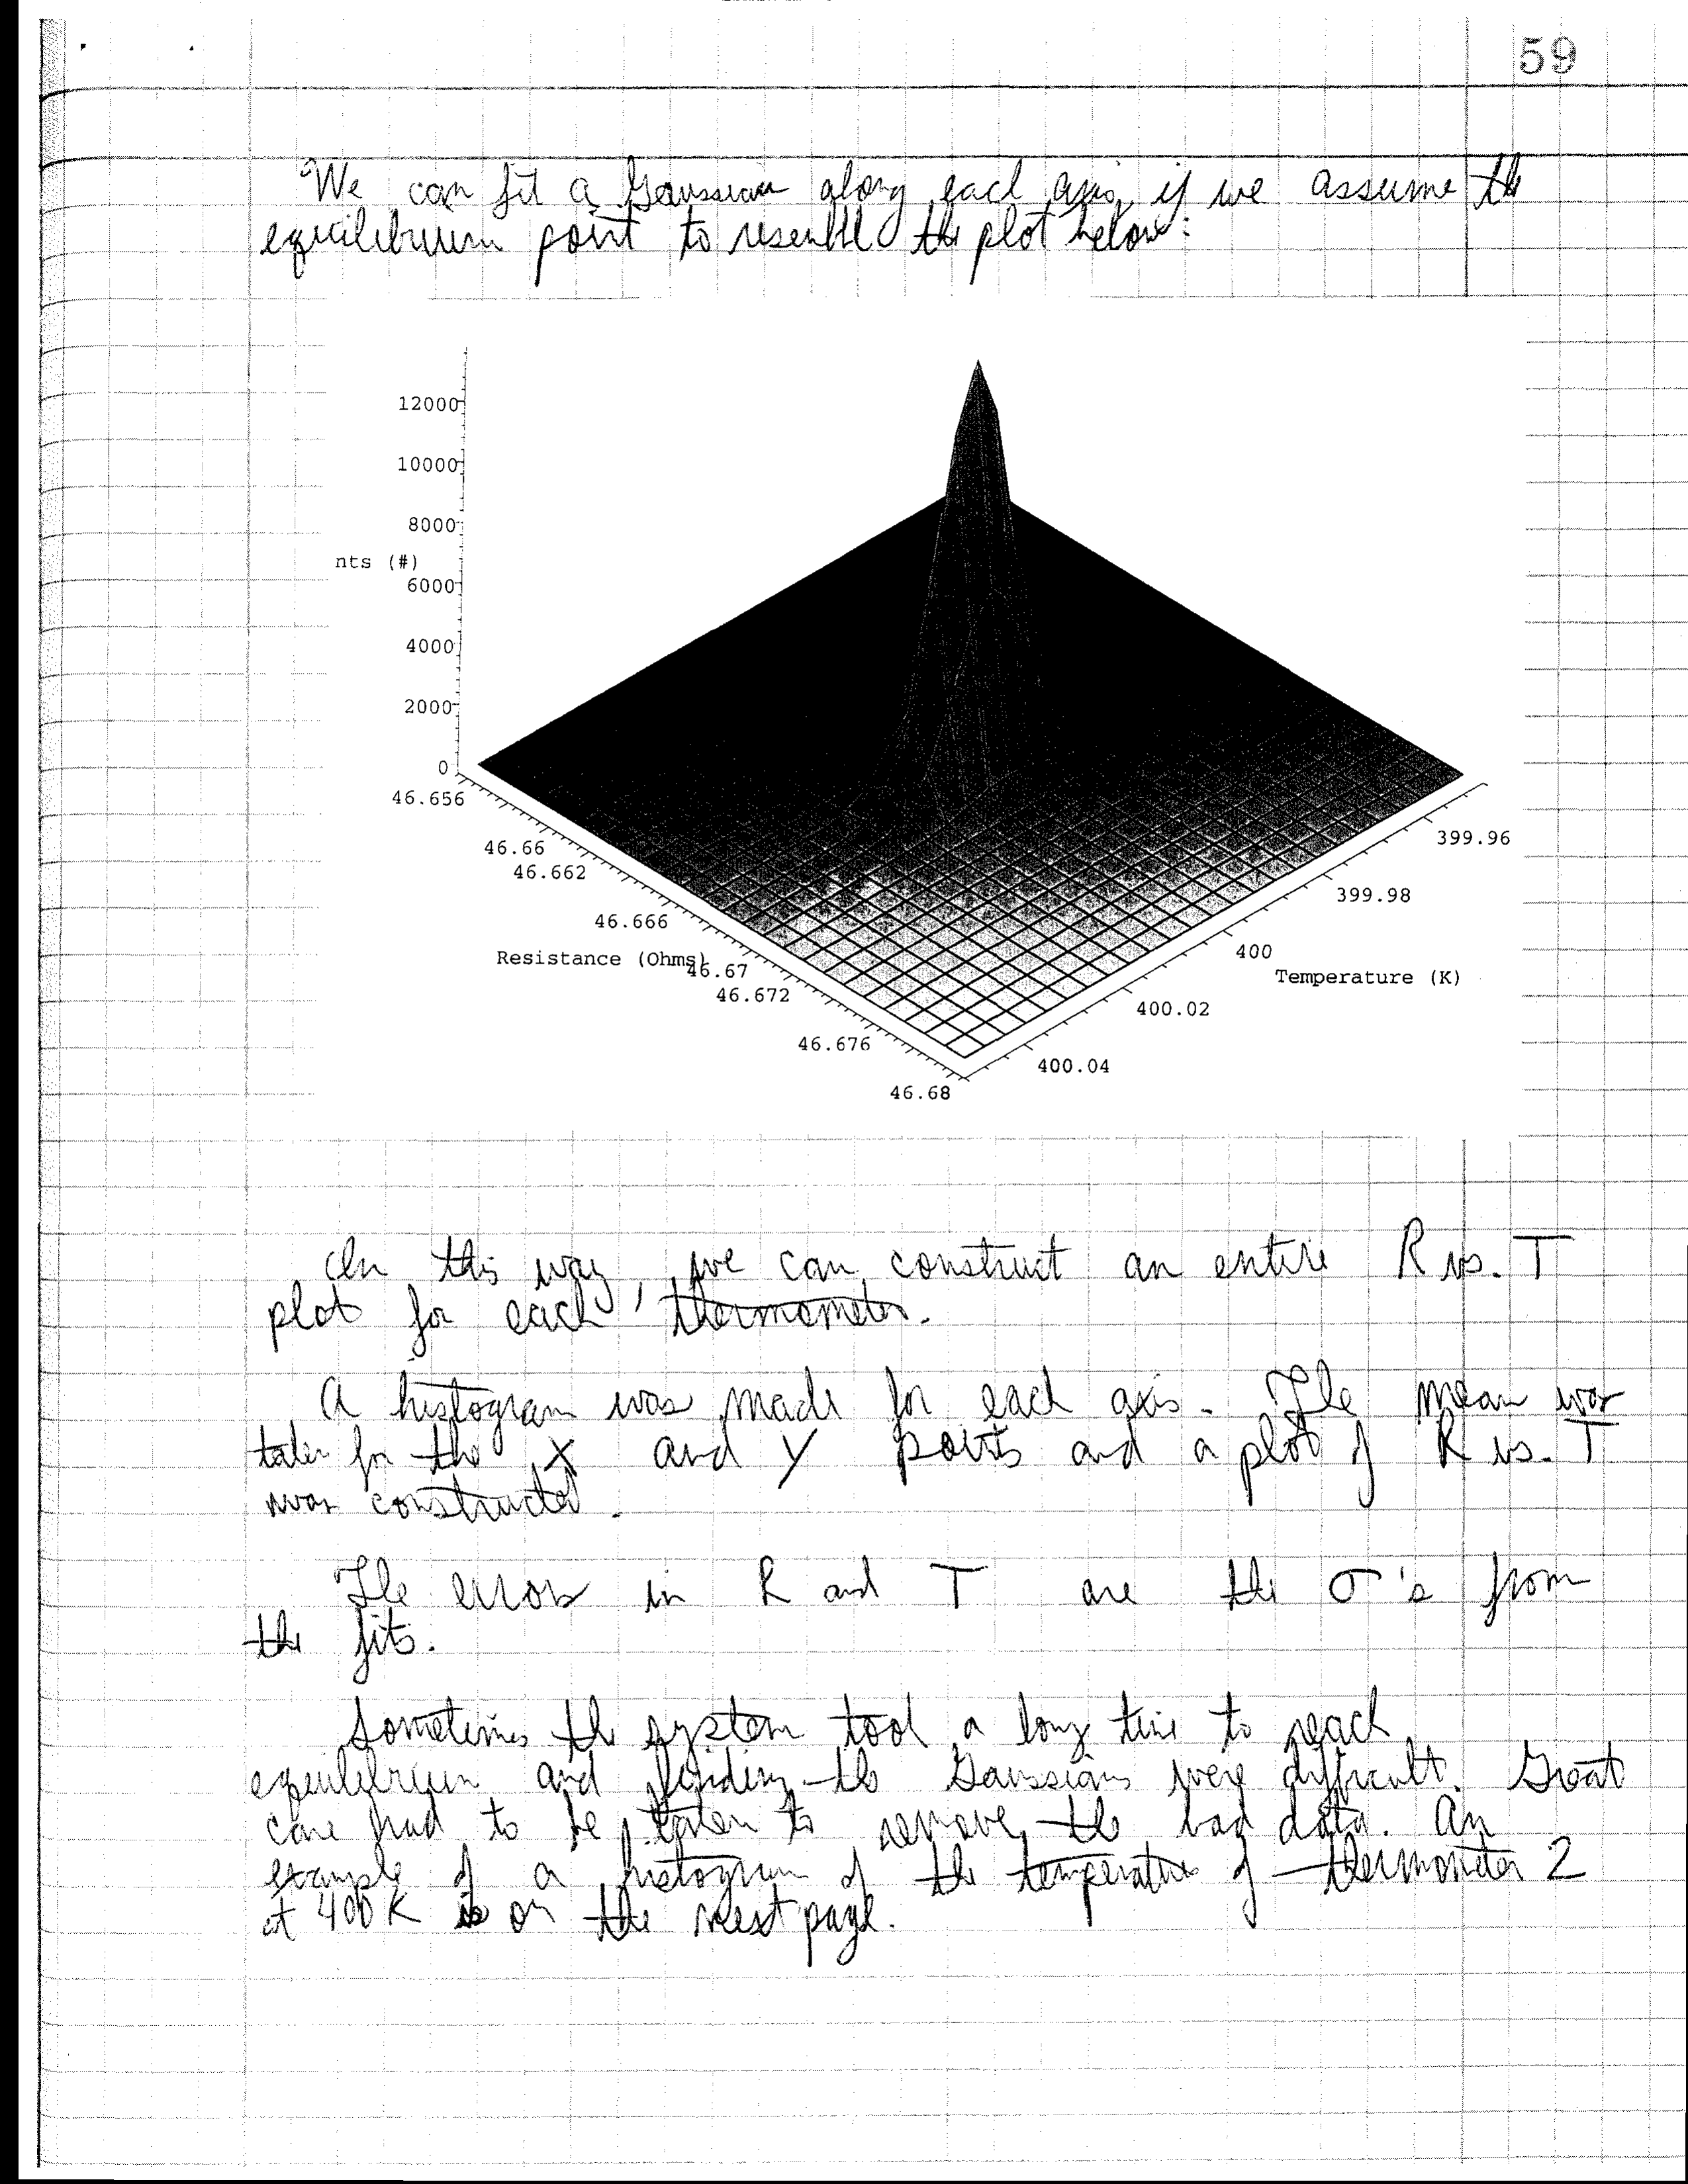 59
We can fit a Gaussian along each axis if we assume the
equilibrium point to resemble the plot below:
12000
10000
8000
nts (#)
6000
4000
2000
0
46.656
46.66
46.662
46.666
Resistance (Ohms)
46.67
46.672
46.676
46.68
399.96
399.98
400
Temperature (K)
400.02
400.04
In this way, we can construct an entire R vs. T
plot for each thermometer.
A histogram was made for each axis. The mean was
taken for the X and Y points and a plot of R vs. T
was constructed.
The errors in R and T are the σ's from
the fits.
Sometimes the system took a long time to reach
equilibrium and finding the Gaussians were difficult. Great
care had to be taken to remove the bad data. An
example of a histogram of the temperature of thermometer 2
at 400 K is on the next page.